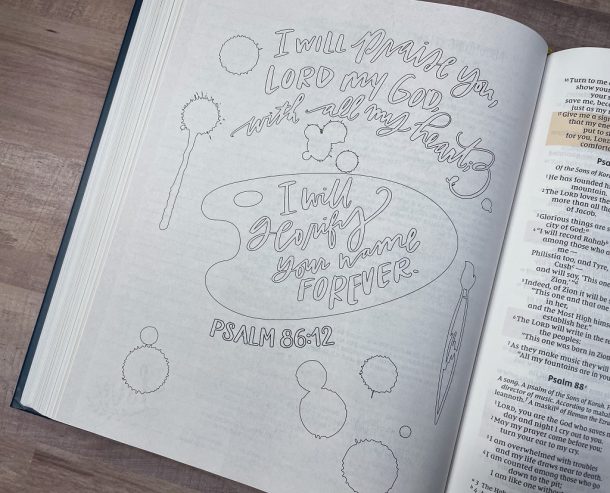 I will praise you,
LORD my GOD,
with all my heart;
I will
glorify
your name
FOREVER.
PSALM 86:12
16 Turn to me
show you
your s
save me, bec
just as my
17 Give me a sig
that my ene
put to s
for you, LORD
comforte
Psa
Of the Sons of Korah
1 He has founded
mountain.
2 The LORD loves the
more than all the
of Jacob.
3 Glorious things are s
city of God:
4 "I will record Rahab
among those who
me —
Philistia too, and Tyre,
Cush
and will say, 'This one
Zion.'"
5 Indeed, of Zion it will be
"This one and that one
in her,
and the Most High him
establish her."
6 The LORD will write in the re
the peoples:
"This one was born in Zion
7 As they make music they will
"All my fountains are in you
Psalm 88
A song. A psalm of the Sons of Korah.
director of music. According to mahal
leannoth. A maskil of Heman the Ezra
1 LORD, you are the God who saves m
day and night I cry out to you.
2 May my prayer come before you;
turn your ear to my cry.
3 I am overwhelmed with troubles
and my life draws near to death.
4 I am counted among those who go
down to the pit;
I am like one without